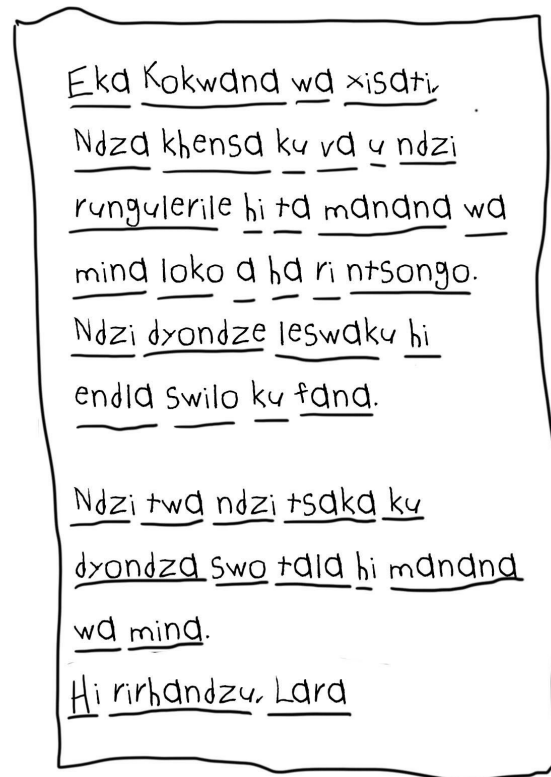 Eka Kokwana wa xisati,
Ndza khensa ku va u ndzi
rungulerile hi ta manana wa
mina loko a ha ri ntsongo.
Ndzi dyondze leswaku hi
endla swilo ku fana.
Ndzi twa ndzi tsaka ku
dyondza swo tala hi manana
wa mina.
Hi rirhandzu, Lara